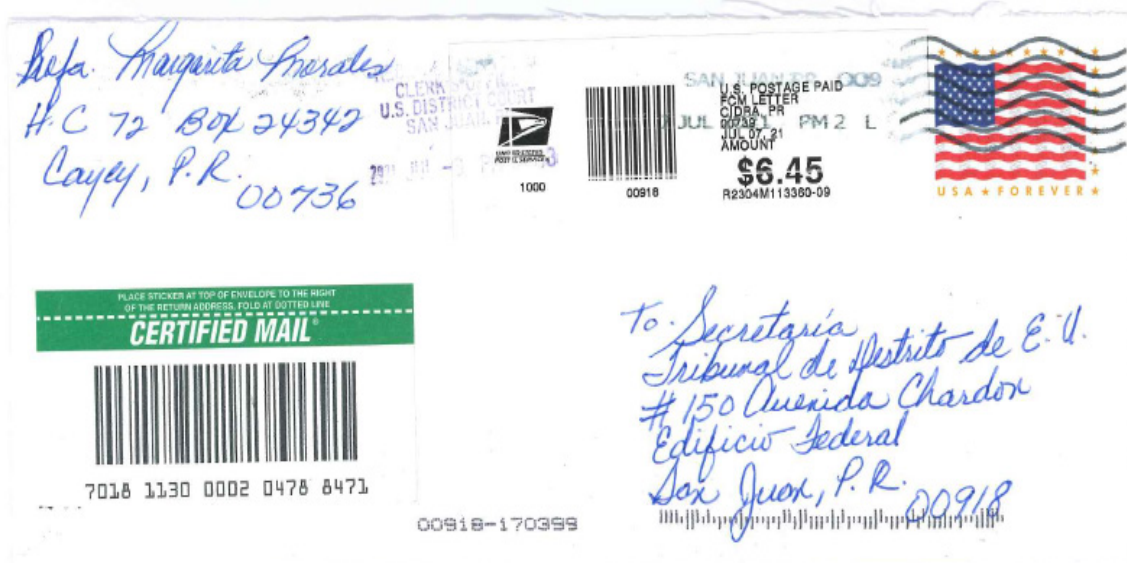 Profa. Margarita Morales
H.C 72 Box 24342
Cayey, P.R.
00736
CLERK'S OFFICE
U.S. DISTRICT COURT
SAN JUAN
UNITED STATES
POSTAL SERVICE
1000
00918
SAN JUAN PR 009
U.S. POSTAGE PAID
FCM LETTER
CIDRA, PR
00739
JUL 07, 21
AMOUNT
$6.45
R2304M113360-09
JUL PM 2 L
USA FOREVER
PLACE STICKER AT TOP OF ENVELOPE TO THE RIGHT
OF THE RETURN ADDRESS, FOLD AT DOTTED LINE
CERTIFIED MAIL®
7018 1130 0002 0478 8471
To. Secretaría
Tribunal de Distrito de E.U.
# 150 Avenida Chardon
Edificio Federal
San Juan, P.R.
00918
00918-170399